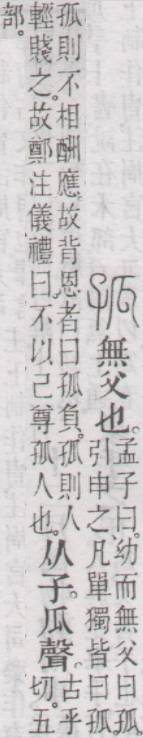 孤無父也。孟子曰。幼而無父曰孤。
引申之凡單獨皆曰孤。
孤則不相酬應。故背恩者曰孤負。孤則人
輕賤之。故鄭注儀禮曰。不以己尊孤人也。
从子。瓜聲。古乎
切。五
部。